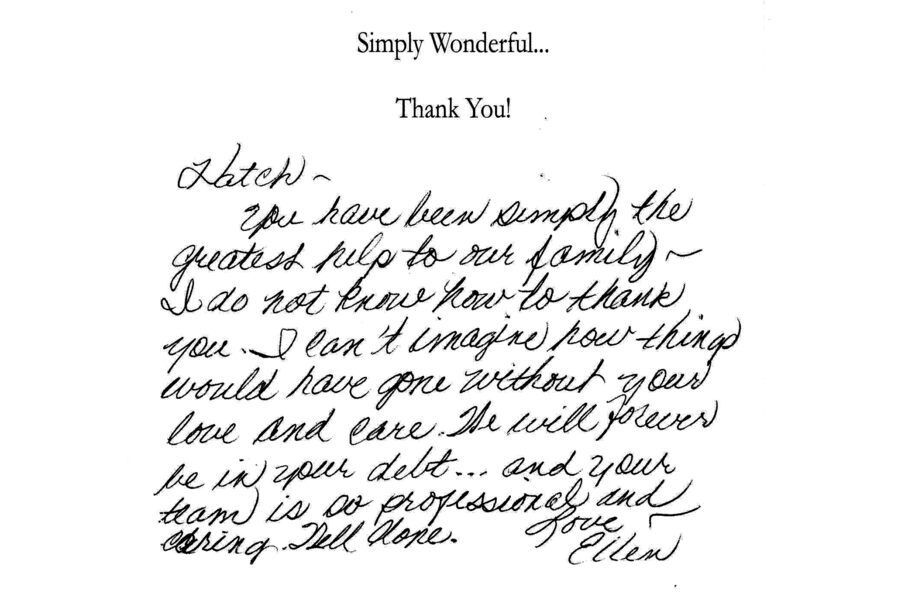 Simply Wonderful...
Thank You!
Hatch ~
You have been simply the
greatest help to our family ~
I do not know how to thank
you. I can't imagine how things
would have gone without your
love and care. We will forever
be in your debt... and your
team is so professional and
caring. Well done. Love ~
Ellen